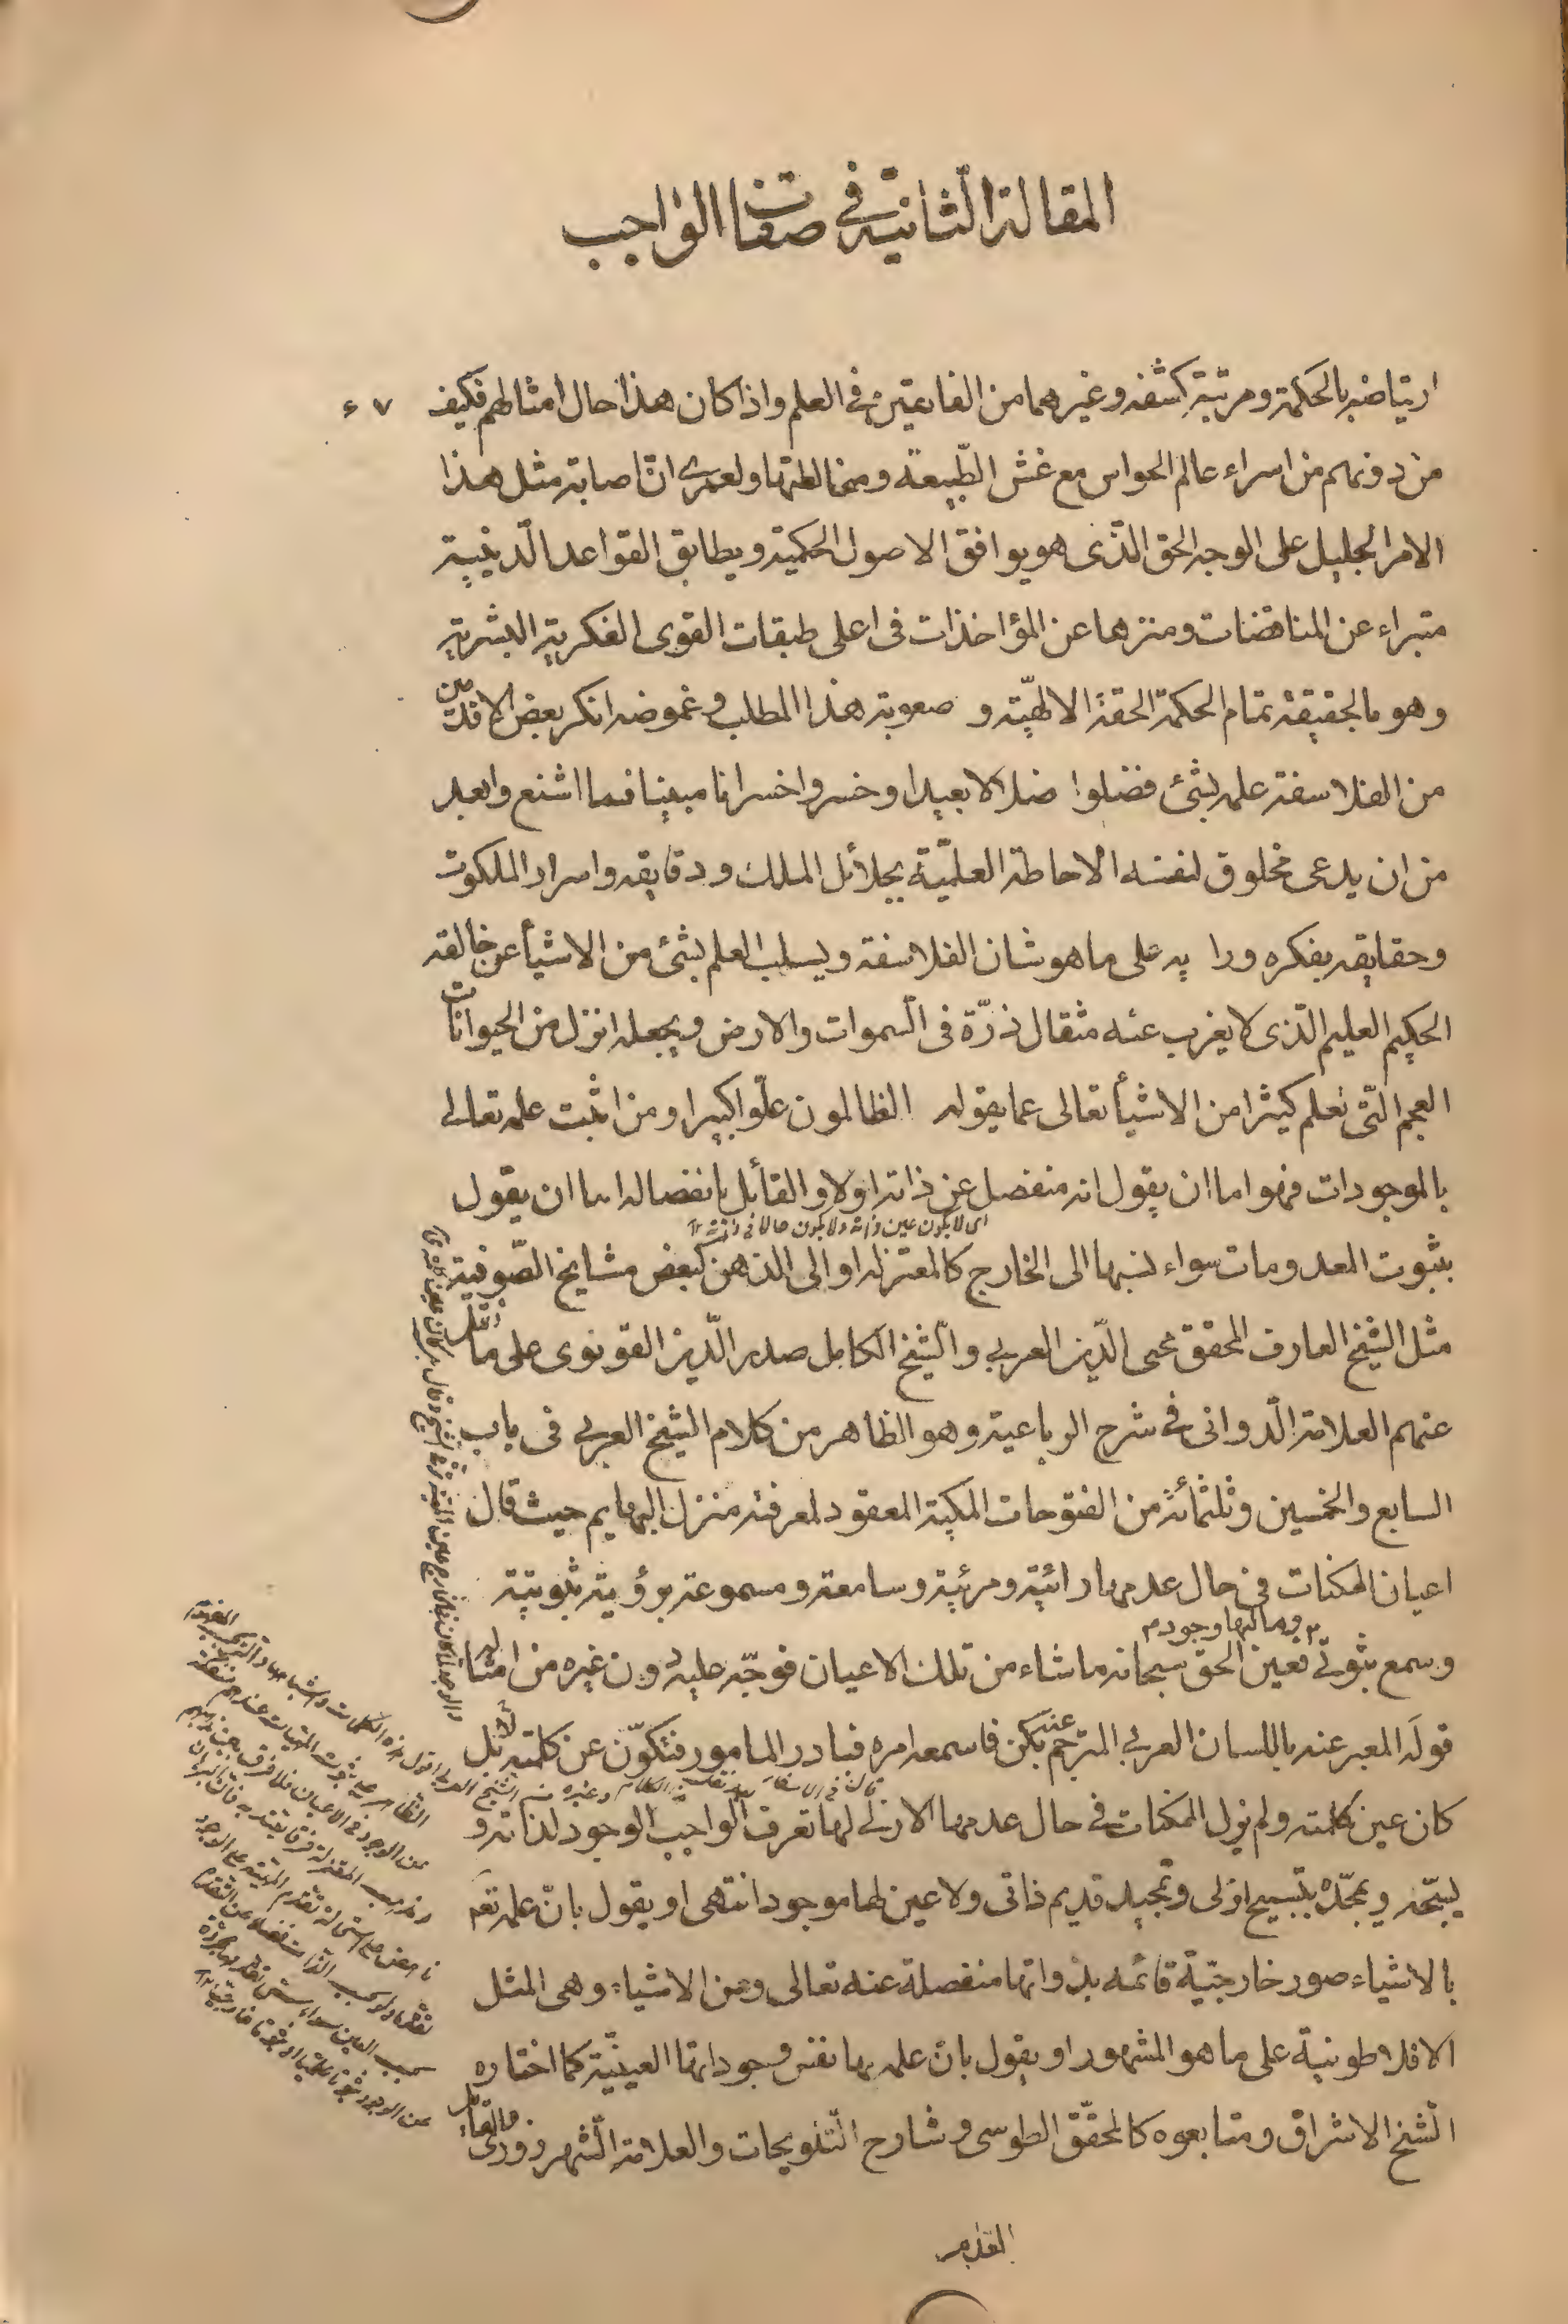 المقالة الثّانيّة في صفات الواجب
ارتياضه بالحكمة ومرتبة كشفه وغيرهما من الفارعين في العلم واذا كان هذا حال امثالهم فكيف
٦٧
من دونهم من اسراء عالم الحواس مع غش الطّبيعة ومخالطتها ولعمرى انّ اصابة مثل هذا
الامر الجليل على الوجه الحق الّذى هو يوافق الاصول الحكمية ويطابق القواعد الّدينيية
متبراء عن المناقضات ومنزها عن المؤاخذات فى اعلى طبقات القوى الفكرية البشرية
وهو بالحقيقة تمام الحكمة الحقة الالهيّة و صعوبة هذا المطلب و غموضه انكر بعض الاقدمين
من الفلاسفة علمه بشئ فضلوا ضلالا بعيدا وخسروا خسرانا مبينا فما اشنع وابعد
من ان يدعى مخلوق لنفسه الاحاطة العلميّة بجلائل الملك ودقايقه واسرار الملكوت
وحقايقه بفكره ورا يه على ما هو شان الفلاسفة ويسلب العلم بشئ من الاشيأ عن خالقه
الحكيم العليم الّذى لا يغرب عنه مثقال ذرّة فى السّموات والارض ويجعله انزل من الحيوانات
العجم الّتى تعلم كيثرا من الاشيأ تعالى عما يقوله الظالمون علّوا كبيرا ومن اثبت علمه تعالى
بالموجودات فهو اما ان يقول انه منفصل عن ذاته اولا و القائل بانفصاله اما ان يقول
اى لا يكون عين ذاته ولا يكون حالا فى ذاته ١٢
بثبوت المعدومات سواء نسبها الى الخارج كالمعتزله او الى الذهن كبعض مشايخ الصّوفية
مثل الشّيخ العارف المحقق محيى الدّين العربي والشّيخ الكامل صدر الدّين القونوى على ما نقل
عنهم العلامة الدّوانى في شرح الرباعية وهو الظاهر من كلام الشيخ العربي فى باب
السابع والخمسين وثلثمائة من الفتوحات المكية المعقود لمعرفة منزل البهايم حيث قال
اعيان الممكنات فى حال عدمها رائية ومرئية وسامعة ومسموعة برؤية ثبوتية
٣ وما لها وجود م
وسمع ثبوتي فعين الحق سبحانه ما شاء من تلك الاعيان فوجّه عليه دون غيره من امثاله
قوله المعبر عنه باللسان العربي المترجم عنه بكن فاسمعه امره فبادر المامور فتكوّن عن كلمته لا بل
كان عين كلمته ولم يزل الممكنات فى حال عدمها الازلي لها تعرف الواجب الوجود لذاته و
يسبّحه ويمجّده بتسبيح ازلى وتمجيد قديم ذاتى ولا عين لها موجود انتهى او يقول بانّ علمه تعم
بالاشياء صور خارجيّة قائمة بذواتها منفصلة عنه تعالى وعن الاشياء وهى المثل
الافلاطونية على ما هو المشهور او يقول بانّ علمه بها نفس وجوداتها العينيّة كما اختاره
الشّيخ الاشراق ومتابعوه كالمحقّق الطوسى و شارح التّلويحات والعلامة الشّهرزورى والقائل